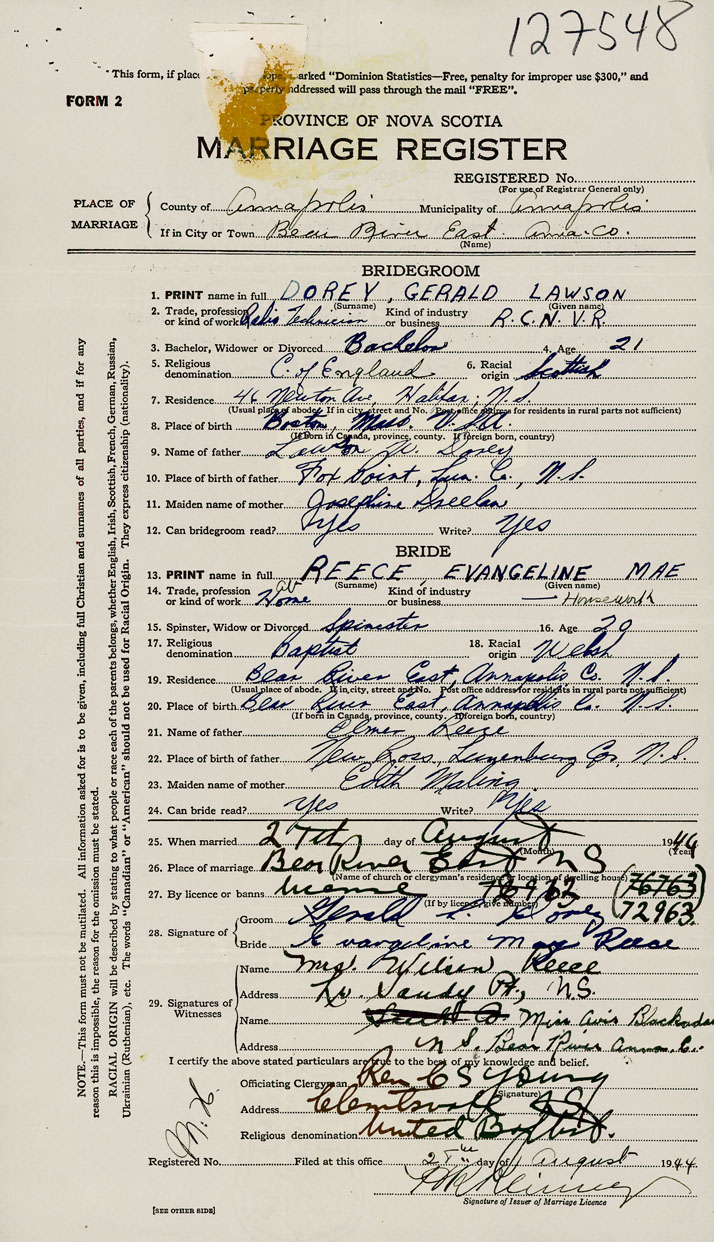 127548
This form, if place ope, arked "Dominion Statistics—Free, penalty for improper use $300," and
properly addressed will pass through the mail "FREE".
FORM 2
PROVINCE OF NOVA SCOTIA
MARRIAGE REGISTER
REGISTERED No.
(For use of Registrar General only)
PLACE OF MARRIAGE
County of Annapolis Municipality of Annapolis
If in City or Town Bear River East Anna. Co.
(Name)
BRIDEGROOM
1. PRINT name in full DOREY, GERALD LAWSON
(Surname) (Given name)
2. Trade, profession or kind of work Radio Technician Kind of industry or business R.C.N.V.R.
3. Bachelor, Widower or Divorced Bachelor 4. Age 21
5. Religious denomination C. of England 6. Racial origin Scottish
7. Residence 46 Newton Av, Halifax, N.S.
(Usual place of abode. If in city, street and No. Post office address for residents in rural parts not sufficient)
8. Place of birth Boston, Mass. U.S.A.
(If born in Canada, province, county. If foreign born, country)
9. Name of father Lawson W. Dorey
10. Place of birth of father Fox Point, Lun. Co., N.S.
11. Maiden name of mother Josephine
12. Can bridegroom read? Yes Write? Yes
BRIDE
13. PRINT name in full REECE, EVANGELINE MAE
(Surname) (Given name)
14. Trade, profession or kind of work at Home Kind of industry or business — Housework
15. Spinster, Widow or Divorced Spinster 16. Age 20
17. Religious denomination Baptist 18. Racial origin Welsh
19. Residence Bear River East, Annapolis Co. N.S.
(Usual place of abode. If in city, street and No. Post office address for residents in rural parts not sufficient)
20. Place of birth Bear River East, Annapolis Co. N.S.
(If born in Canada, province, county. If foreign born, country)
21. Name of father Elmer Reece
22. Place of birth of father New Ross, Lunenburg Co, N.S.
23. Maiden name of mother Edith Maling
24. Can bride read? Yes Write? Yes
25. When married 27th day of August 1944
(Month) (Year)
26. Place of marriage Bear River East N S
(Name of church or clergyman's residence or location of dwelling house)
27. By licence or banns license 72963 (76763)
(If by licence, give number) 72963.
28. Signature of
Groom Gerald L. Dorey
Bride Evangeline Mae Reece
29. Signatures of Witnesses
Name Mrs. Wilson Reece
Address Lr. Sandy Pt., N.S.
Name Miss Avis Blackadar
Address N S. Bear River Anna. Co.
I certify the above stated particulars are true to the best of my knowledge and belief.
Officiating Clergyman Rev C S Young
(Signature)
Address Clementsvale N.S.
Religious denomination United Baptist.
M. H.
Registered No. Filed at this office 25th day of August 1944
Signature of Issuer of Marriage Licence
[SEE OTHER SIDE]
NOTE.—This form must not be mutilated. All information asked for is to be given, including full Christian and surnames of all parties, and if for any
reason this is impossible, the reason for the omission must be stated.
RACIAL ORIGIN will be described by stating to what people or race each of the parents belongs, whether English, Irish, Scottish, French, German, Russian,
Ukrainian (Ruthenian), etc. The words "Canadian" or "American" should not be used for Racial Origin. They express citizenship (nationality).